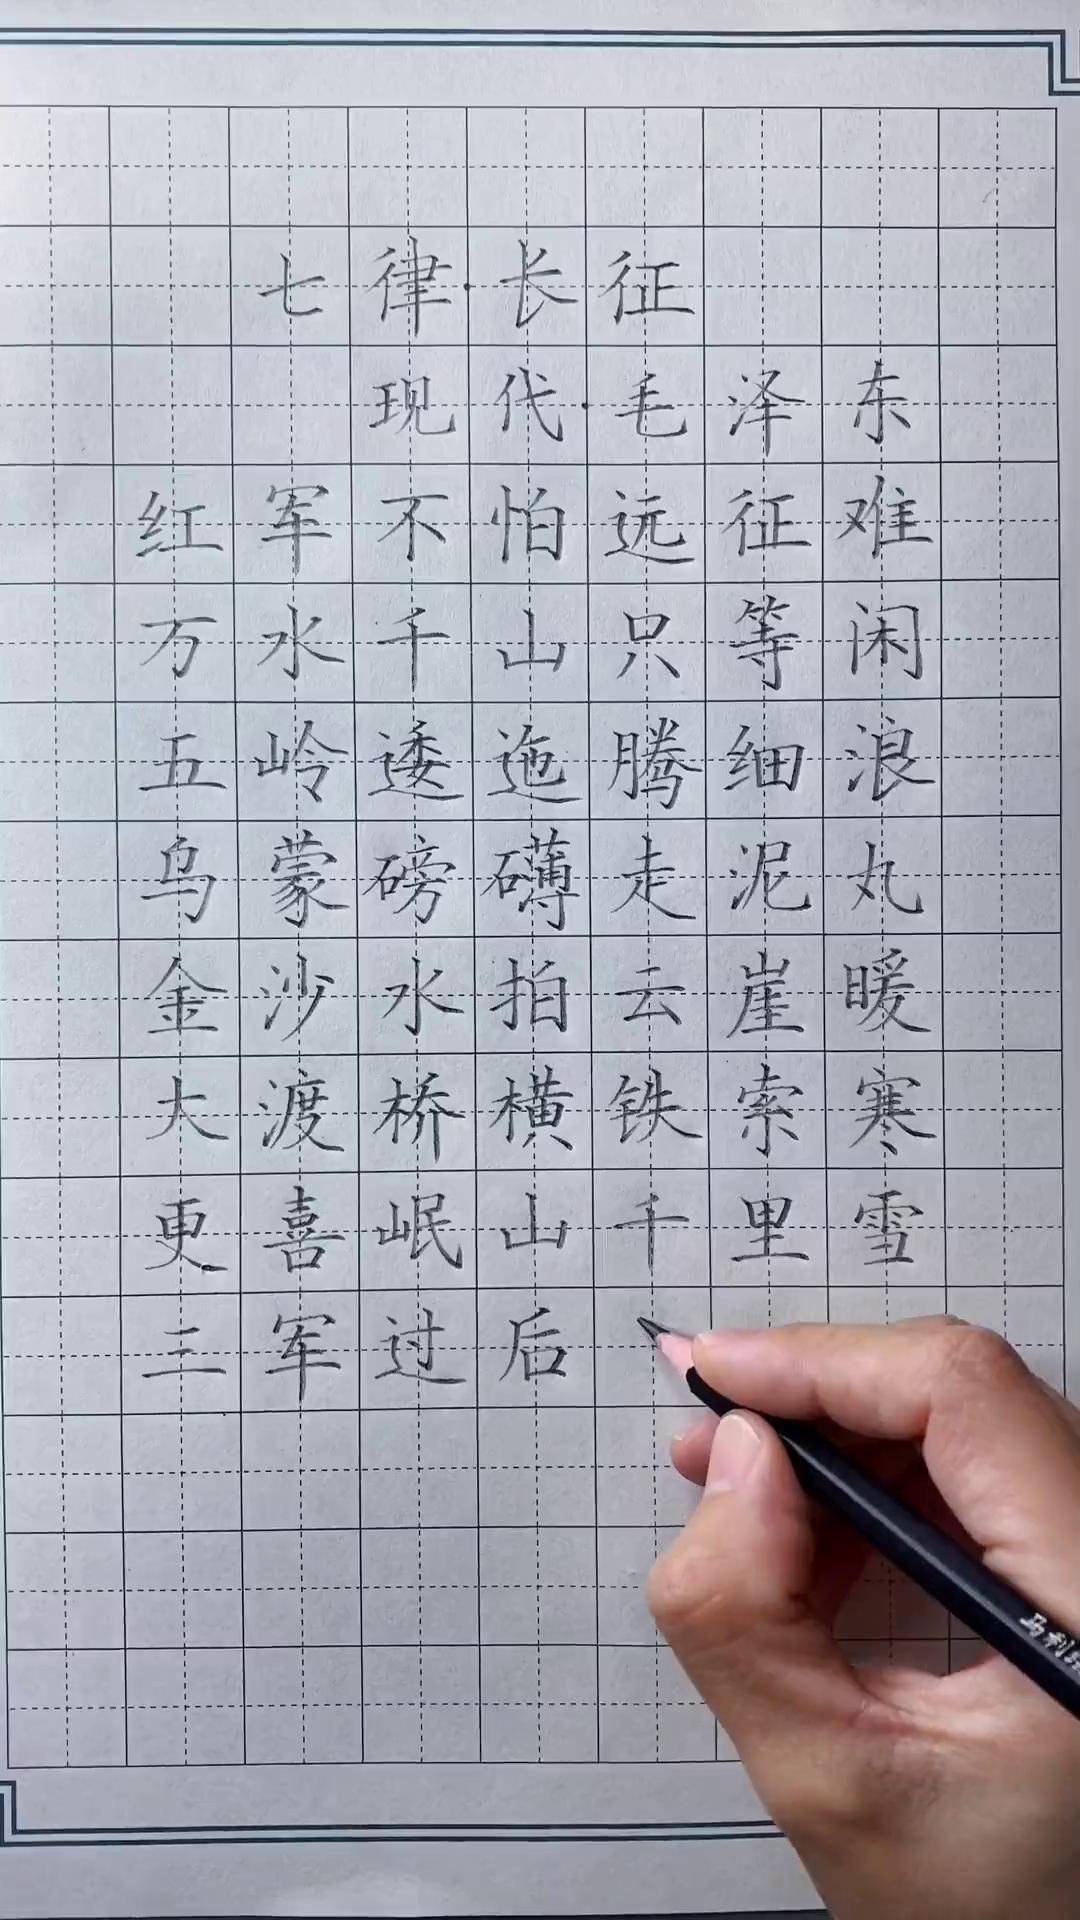 七律·长征
现代·毛泽东
红军不怕远征难
万水千山只等闲
五岭逶迤腾细浪
乌蒙磅礴走泥丸
金沙水拍云崖暖
大渡桥横铁索寒
更喜岷山千里雪
三军过后
马利